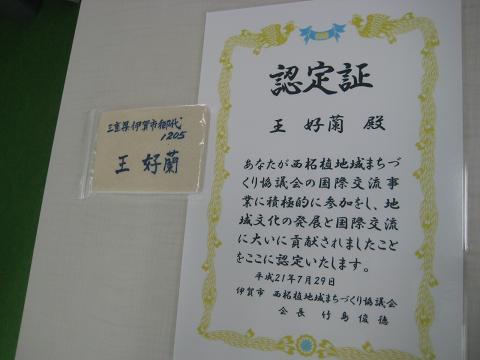 三重県伊賀市御代
1205
王 好蘭
認定証
王 好蘭 殿
あなたが西柘植地域まちづ
くり協議会の国際交流事
業に積極的に参加をし、地
域文化の発展と国際交流
に大いに貢献されましたこと
をここに認定いたします。
平成21年7月29日
伊賀市 西柘植地域まちづくり協議会
会長 竹島俊徳